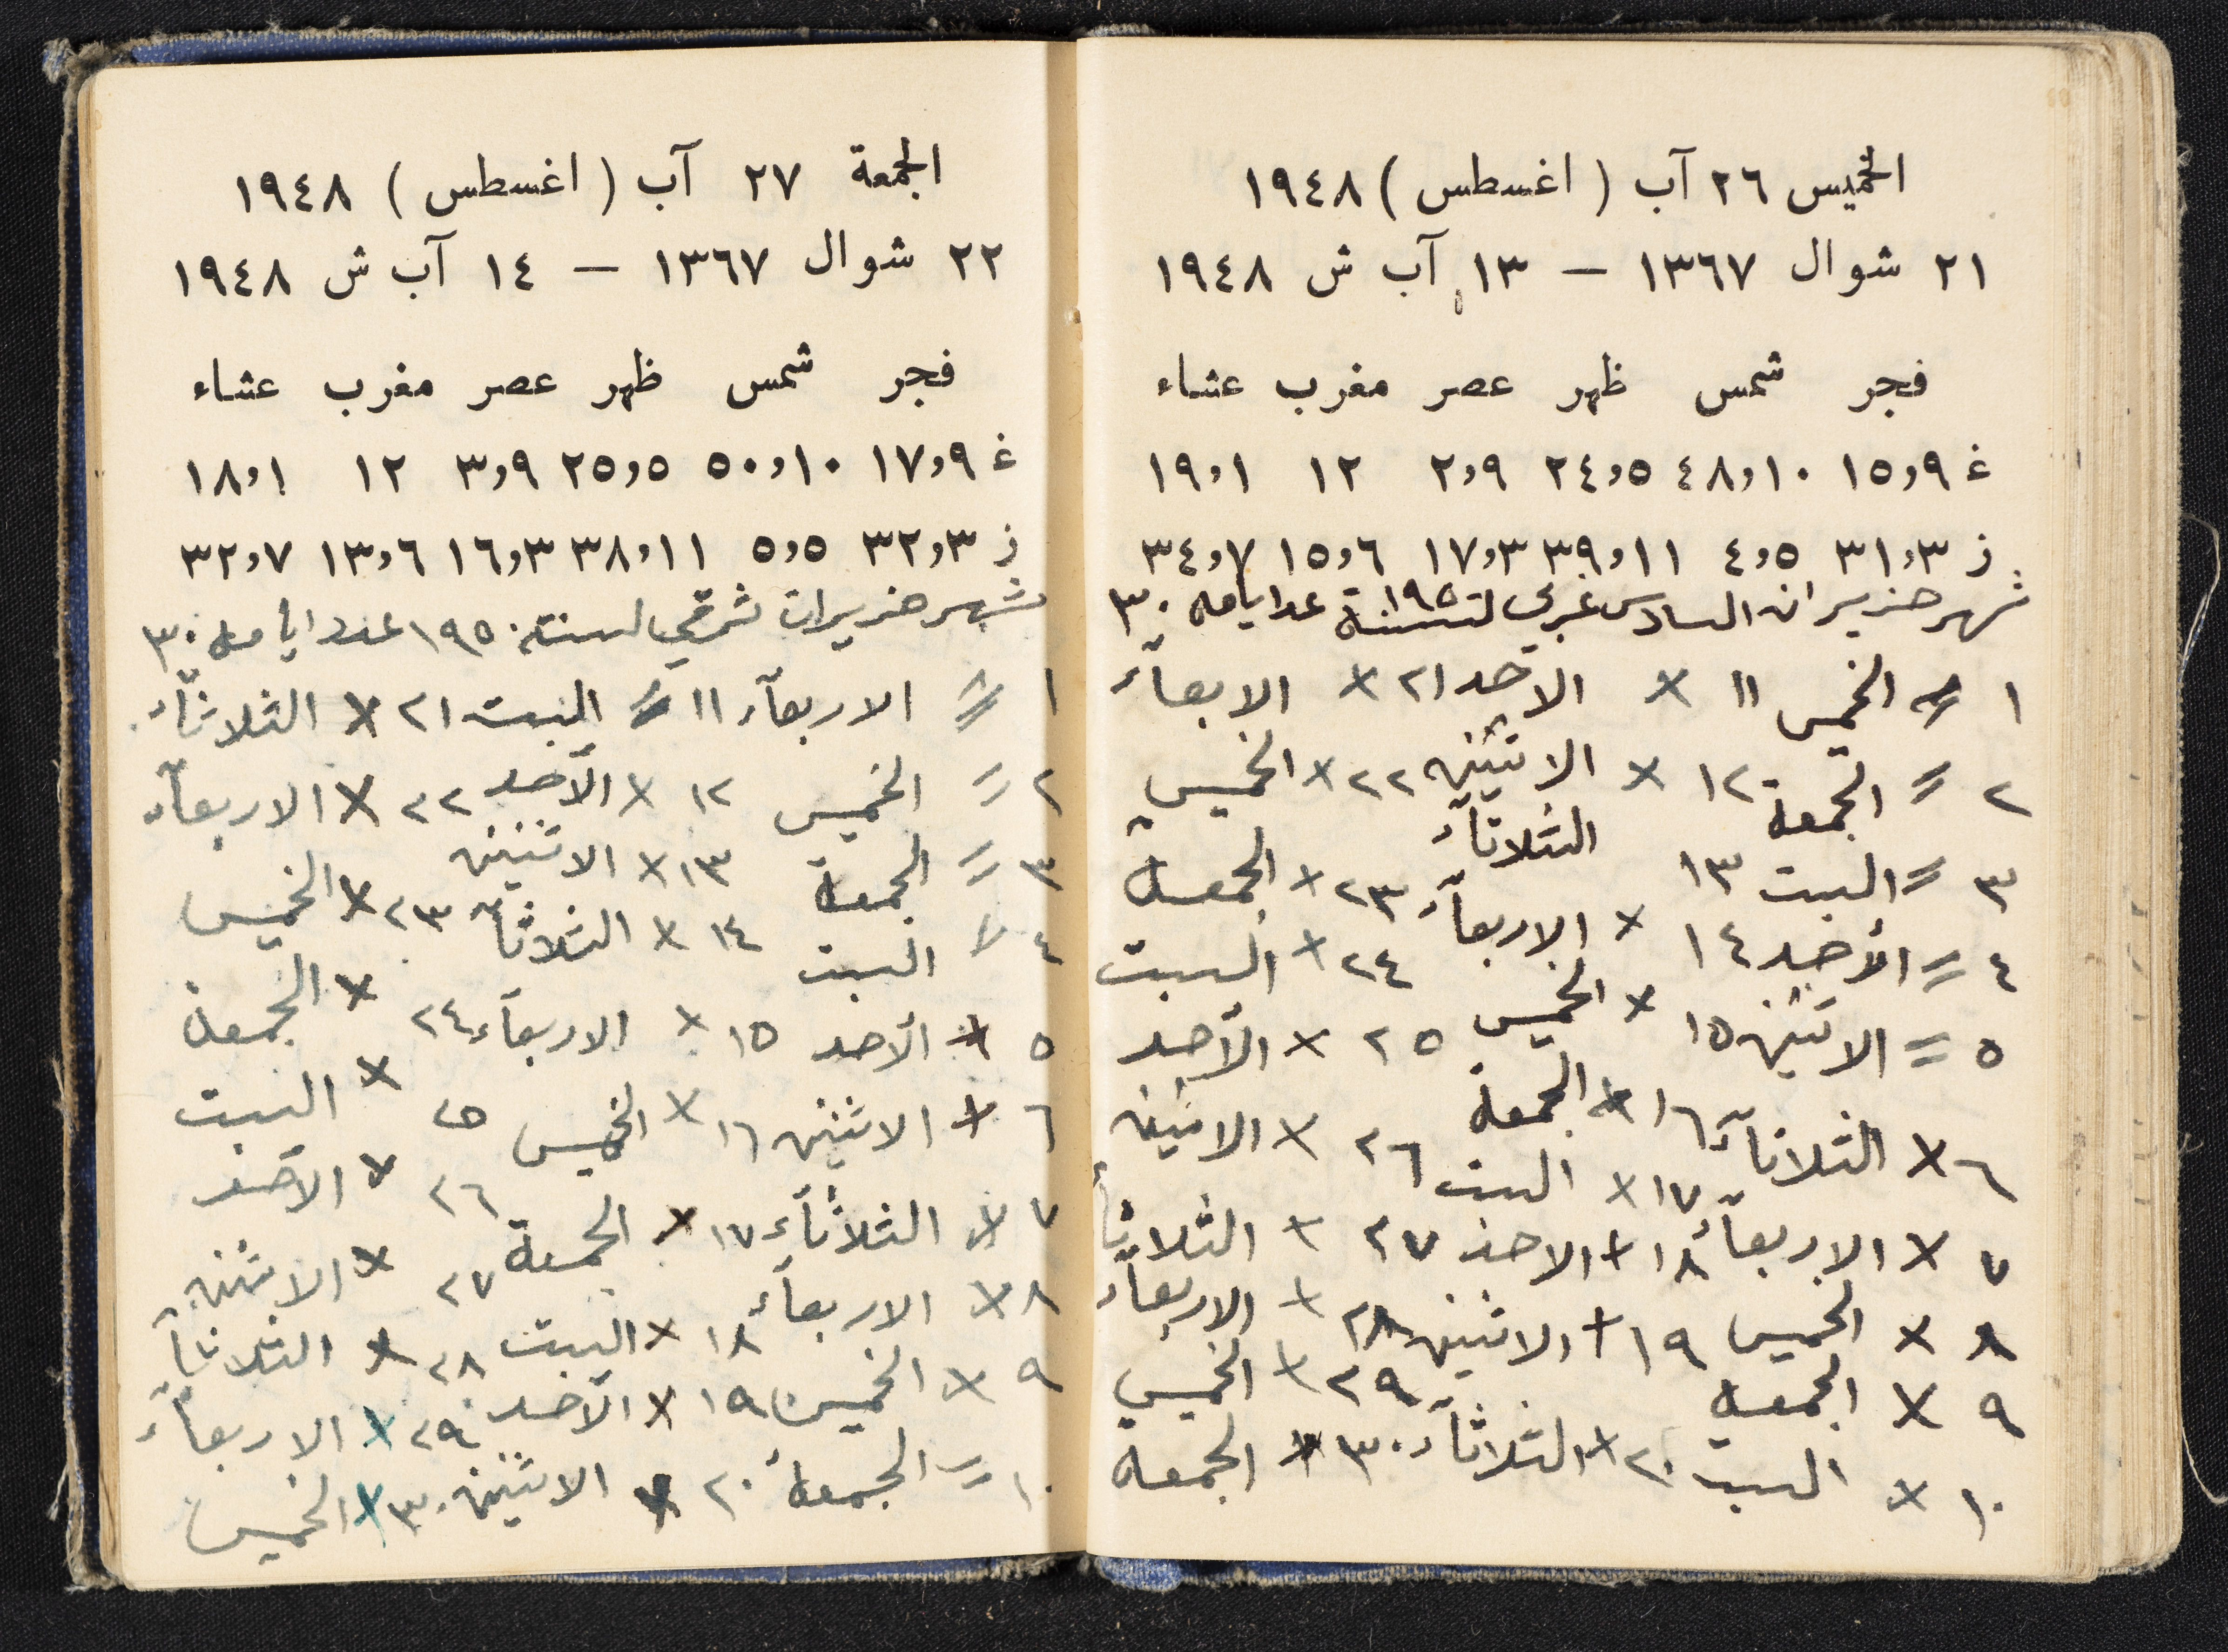 الخميس ٢٦ آب ( اغسطس ) ١٩٤٨
٢١ شوال ١٣٦٧ — ١٣ آب ش ١٩٤٨
فجر شمس ظهر عصر مغرب عشاء
غ ١٥,٩ ٤٨,١٠ ٢٤,٥ ٢,٩ ١٢ ١٩,١
ز ٣١,٣ ٤,٥ ٣٩,١١ ١٧,٣ ١٥,٦ ٣٤,٧
شهر حزيران السادس غربي لسنة ١٩٥٠ عدايامه ٣٠
١ = الخميس ١١ × الاحد ٢١ × الابعآء
٢ = الجمعة ١٢ × الاثنين ٢٢ × الخميس
٣ = السبت ١٣ الثلاثآء ٢٣ × الجمعة
٤ = الأحد ١٤ × الاربعآء ٢٤ × السبت
٥ = الاثنين ١٥ × الخميس ٢٥ × الأحد
٦ × الثلاثآء ١٦ × الجمعة ٢٦ × الاثنين
٧ × الاربعآء ١٧ × السبت ٢٧ × الثلاثآ
٨ × الخميس ١٨ + الاحد ٢٨ × الاربعآء
٩ × الجمعة ١٩ + الاثنين ٢٩ × الخميس
١٠ × السبت ٢٠ × الثلاثآء ٣٠ × الجمعة
الجمعة ٢٧ آب ( اغسطس ) ١٩٤٨
٢٢ شوال ١٣٦٧ — ١٤ آب ش ١٩٤٨
فجر شمس ظهر عصر مغرب عشاء
غ ١٧,٩ ٥٠,١٠ ٢٥,٥ ٣,٩ ١٢ ١٨,١
ز ٣٢,٣ ٥,٥ ٣٨,١١ ١٦,٣ ١٣,٦ ٣٢,٧
شهر حزيران شرقي لسنة ١٩٥٠ عدد ايامه ٣٠
١ = الاربعآء ١١ = السبت ٢١ × الثلاثآء
٢ = الخميس ١٢ × الأحد ٢٢ × الاربعآء
٣ = الجمعة ١٣ × الاثنين ٢٣ × الخميس
٤ = السبت ١٤ × الثلاثآ ٢٤ × الجمعة
٥ × الأحد ١٥ × الاربعآء ٢٥ × السبت
٦ × الاثنين ١٦ × الخميس ٢٦ × الأحد
٧ × الثلاثآء ١٧ × الجمعة ٢٧ × الاثنين
٨ × الاربعآء ١٨ × السبت ٢٨ × الثلاثآ
٩ × الخميس ١٩ × الأحد ٢٩ × الاربعآء
١٠ = الجمعة ٢٠ × الاثنين ٣٠ × الخميس